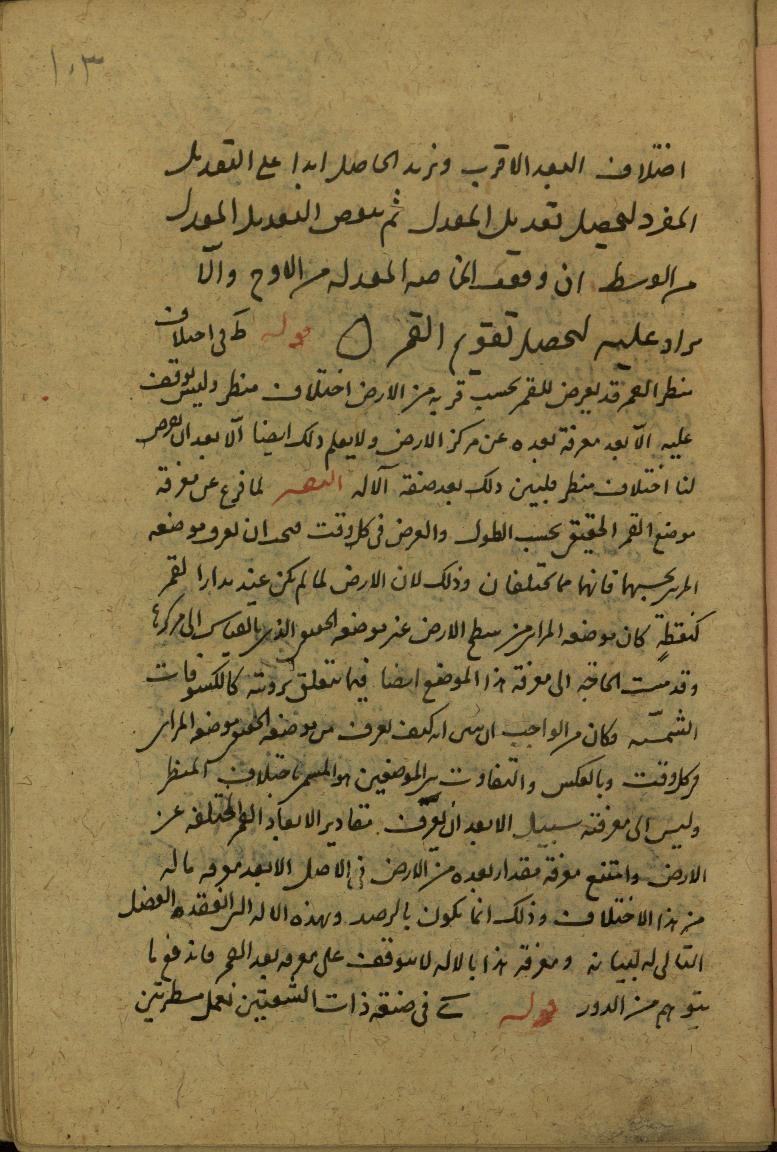 ١٠٣
اختلاف البعد الاقرب ونزيد الحاصل ابدا على التعديل
المفرد لتحصيل تعديل المعدل ثم ننقص التعديل المعدل
من الوسط ان وقعت الخاصة المعدلة من الاوج والّا
نزاد عليه لتحصل تقويم القمر قوله ط فى اختلاف
منظر القمر قد يعرض للقمر بحسب قربه من الارض اختلاف منظر وليس يوقف
عليه الّا بعد معرفة بعده عن مركز الارض ولا يعلم ذلك ايضا الّا بعد ان يعرض
لنا اختلاف منظر فلنبين ذلك بعد صنعة آلاله لما فرغ عن معرفة
موضع القمر الحقيقى بحسب الطول والعرض فى كل وقت ان نعرف موضعه
المرئى بحسبها فانهما مما يختلفان وذلك لان الارض لما لم يكن عند مدار القمر
كنقطةٍ كان موضعه المرائى من سطح الارض غير موضعه الحقيقى الذى بالقياس الى مركزها
وقد مست الحاجة الى معرفة هذا الموضع ايضا فيما يتعلق برؤيته كالكسوفات
الشمسيّه وكان من الواجب ان يبين انه كيف يعرف من موضعه الحقيقى موضعه المرائى
فى كل وقت وبالعكس والتفاوت بين الموضعين هو المسمى باختلاف المنظر
وليس الى معرفته سبيل الا بعد ان يعرّف مقادير الابعاد القمر المختلفة عن
الارض وامتنع معرفة مقدار بعده من الارض فى الاصل الا بعد معرفه ماله
من هذا الاختلاف وذلك انما يكون بالرصد وبهذه الاله التى انعقد الفصل
التالى له لبيانه ومعرفة هذا بالاله لا يتوقف على معرفه بعد القمر فاندفع ما
يتوهم من الدور قوله ى فى صنعة ذات الشعبتين نعمل مسطرتين